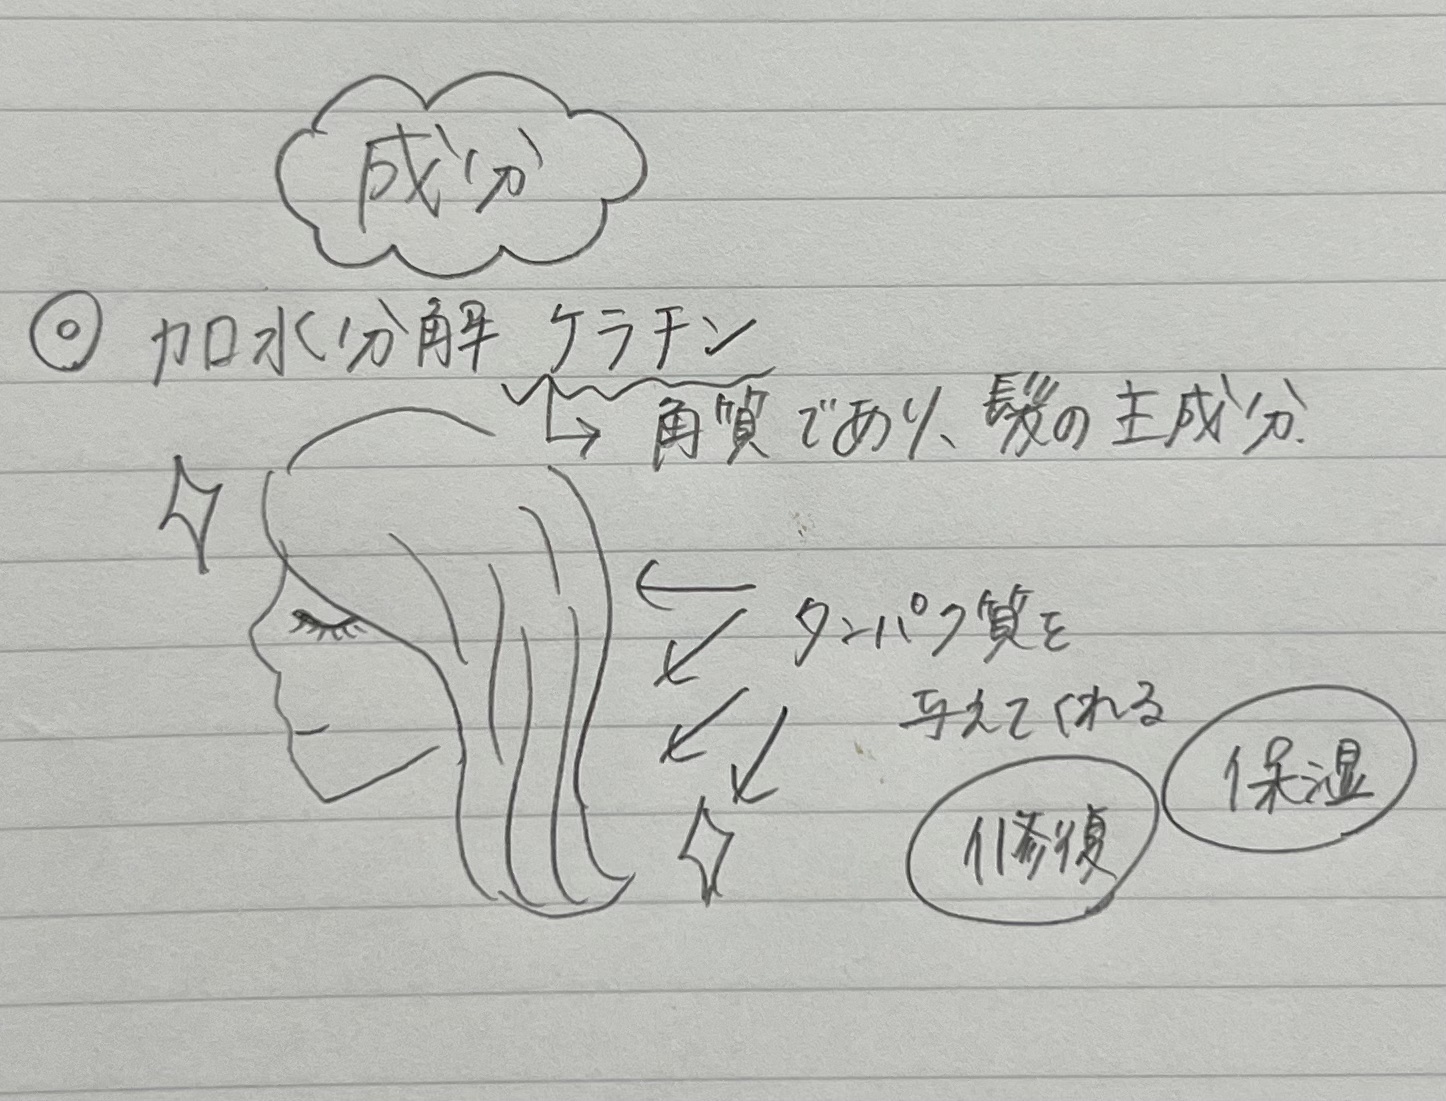 成分
◎ 加水分解ケラチン
→ 角質であり、髪の主成分.
タンパク質を
与えてくれる
保湿
修復